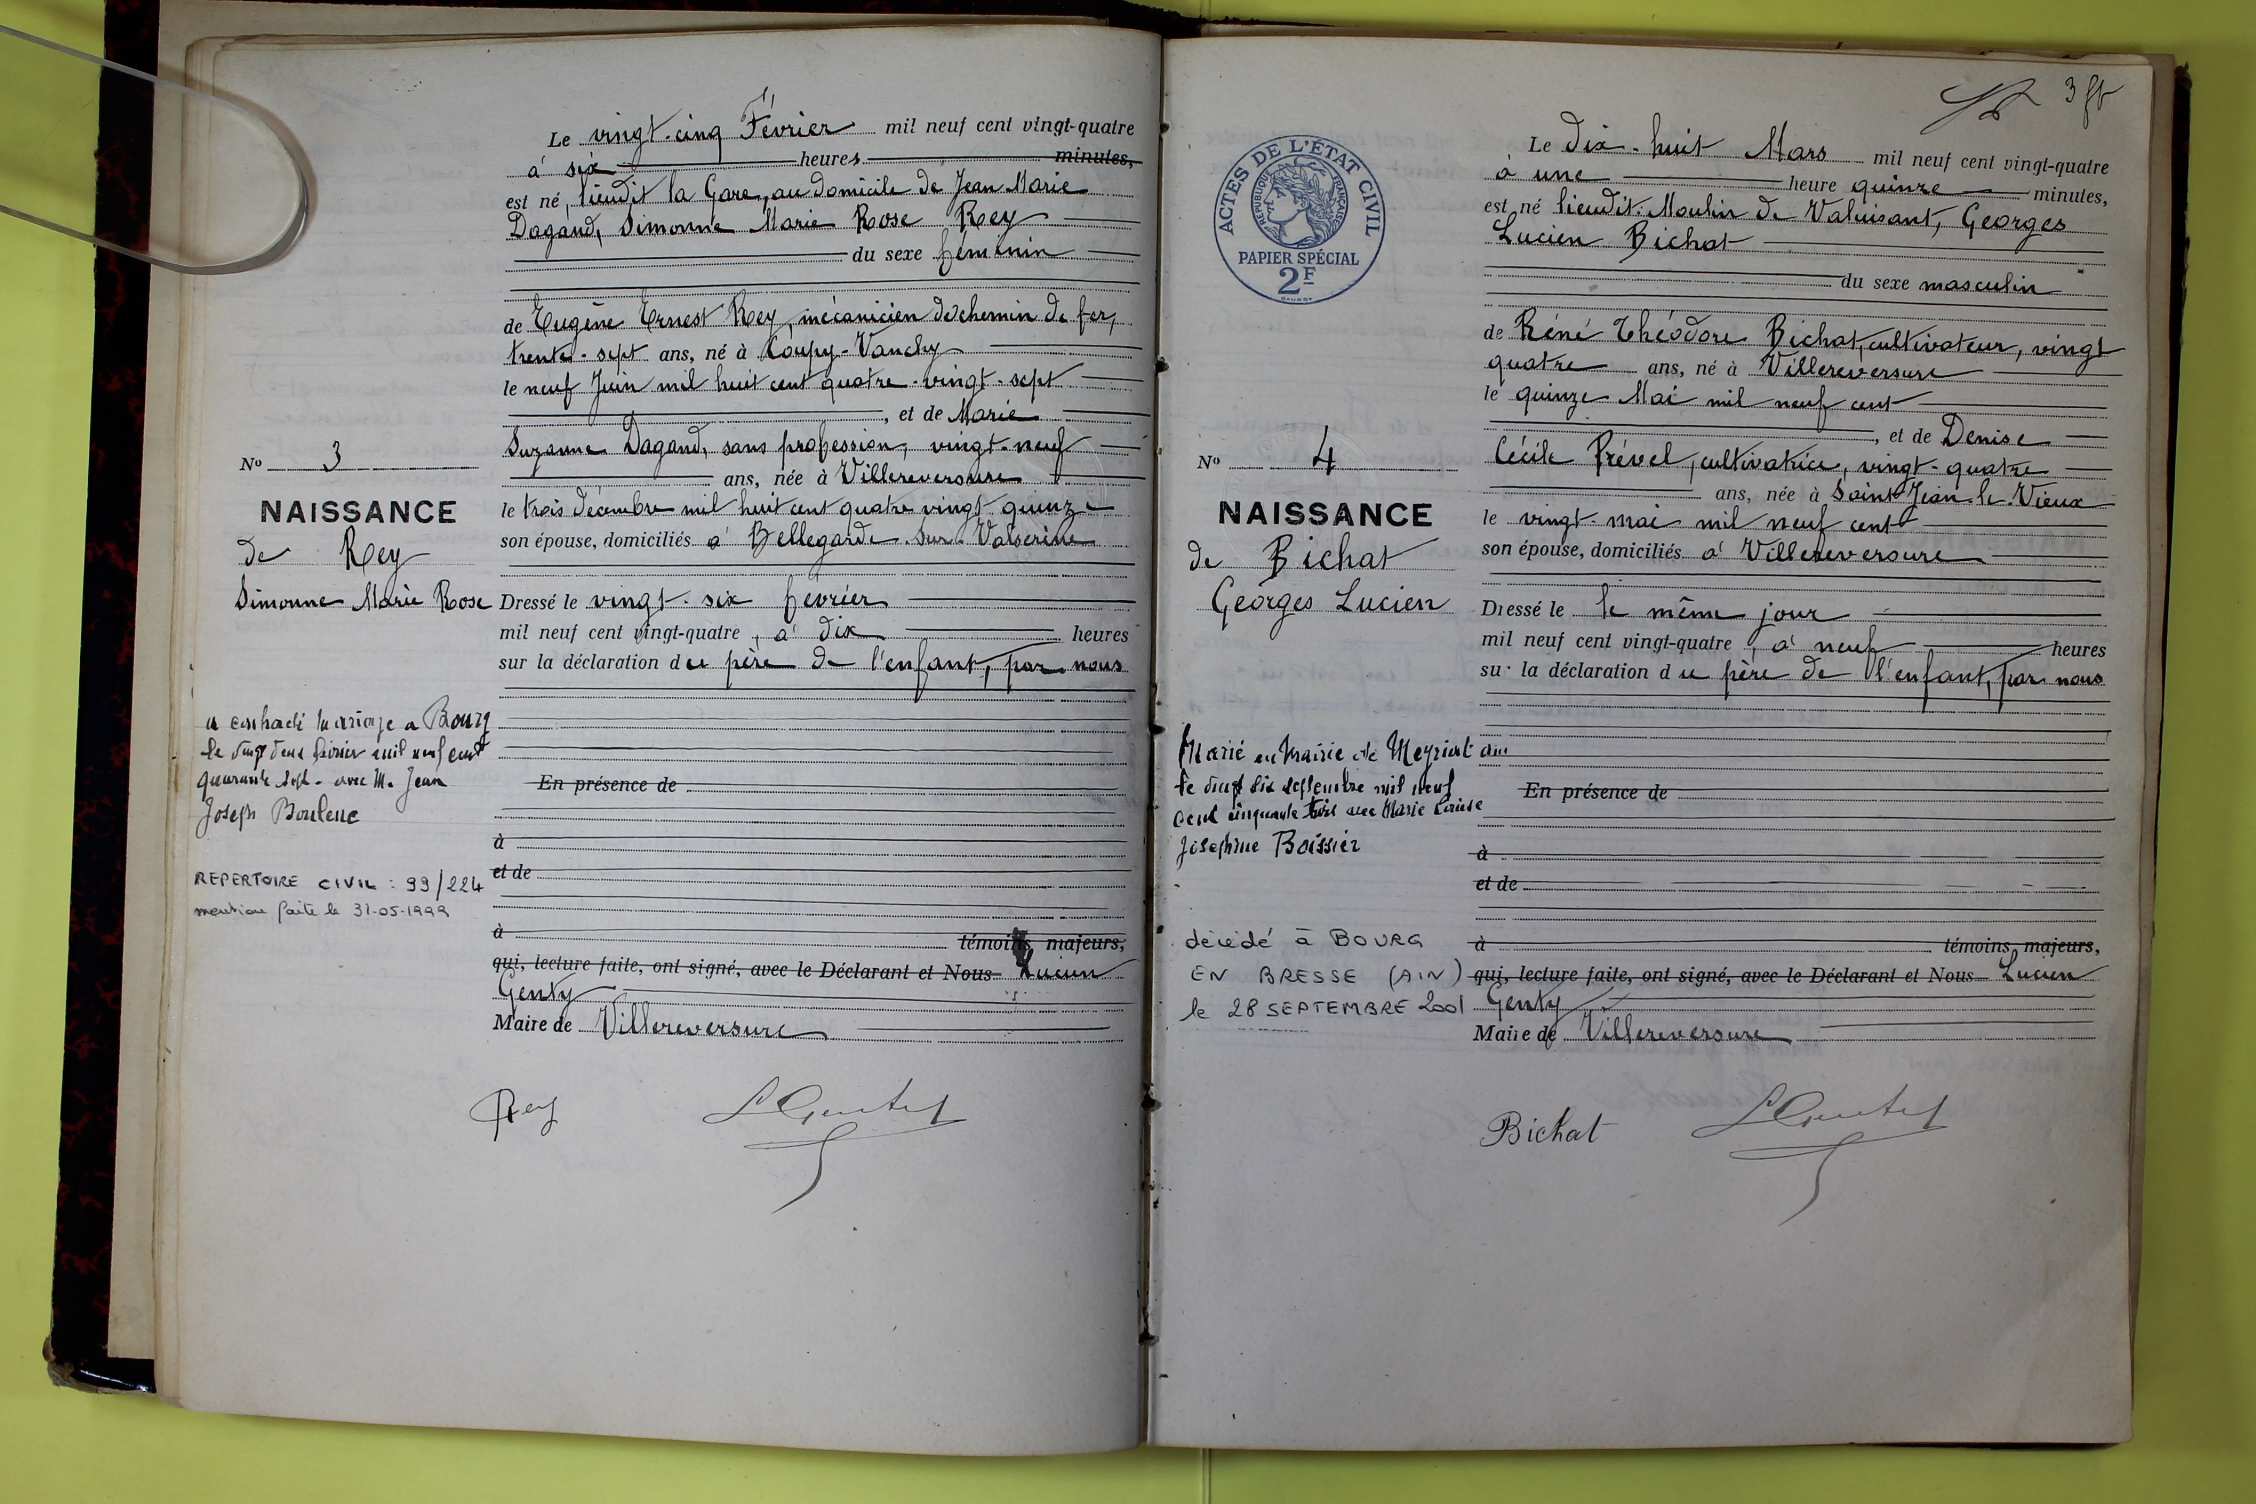 Le vingt-cinq Février mil neuf cent vingt-quatre
à six heures minutes,
est né, lieudit la Gare, au domicile de Jean Marie
Dagand, Simonne Marie Rose Rey
du sexe féminin
de Eugène Ernest Rey, mécanicien de chemin de fer,
trente-sept ans, né à Coupy-Vanchy
le neuf Juin mil huit cent quatre-vingt-sept
, et de Marie
Suzanne Dagand, sans profession, vingt-neuf
ans, née à Villereversure
le trois décembre mil huit cent quatre vingt quinze
son épouse, domiciliés à Bellegarde-sur-Valserine
Dressé le vingt-six février
mil neuf cent vingt-quatre, à dix heures
sur la déclaration du père de l'enfant, par nous
En présence de
à
et de
à témoins majeurs,
qui, lecture faite, ont signé, avec le Déclarant et Nous Lucien
Genty
Maire de Villereversure
Rey LGenty
No 3
NAISSANCE
de Rey
Simonne Marie Rose
a contracté mariage a Bourg
le vingt deux février mil neuf cent
quarante sept - avec M. Jean
Joseph
REPERTOIRE CIVIL : 99/224
mention faite le 31-05-1999
3 ft
ACTES DE L'ÉTAT CIVIL
RÉPUBLIQUE FRANÇAISE
PAPIER SPÉCIAL
2F
Le dix-huit Mars mil neuf cent vingt-quatre
à une heure quinze minutes,
est né lieudit: Moulin de Valuisant, Georges
Lucien Bichat
du sexe masculin
de Réné Théodore Bichat, cultivateur, vingt
quatre ans, né à Villereversure
le quinze Mai mil neuf cent
, et de Denise
Cécile Prével, cultivatrice, vingt-quatre
ans, née à Saint-Jean-le-Vieux
le vingt-mai mil neuf cent
son épouse, domiciliés à Villereversure
Dressé le le même jour
mil neuf cent vingt-quatre, à neuf heures
sur la déclaration du père de l'enfant, par nous
En présence de
à
et de
à témoins majeurs,
qui, lecture faite, ont signé, avec le Déclarant et Nous Lucien
Genty
Maire de Villereversure
Bichat LGenty
No 4
NAISSANCE
de Bichat
Georges Lucien
Marié en Mairie de Meyriat
le vingt six septembre mil neuf
cent cinquante trois avec Marie Louise
Joséphine Boissier
décédé à BOURG
EN BRESSE (AIN)
le 28 SEPTEMBRE 2001